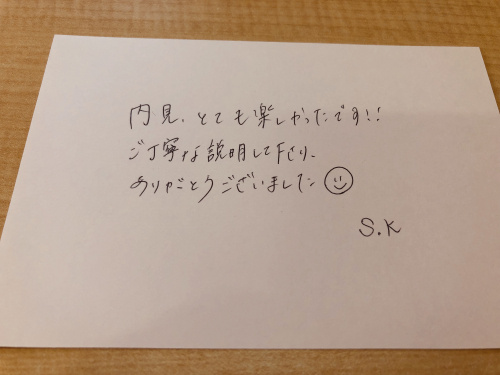 内見、とても楽しかったです!!
ご丁寧な説明して下さり、
ありがとうございました☺
S.K